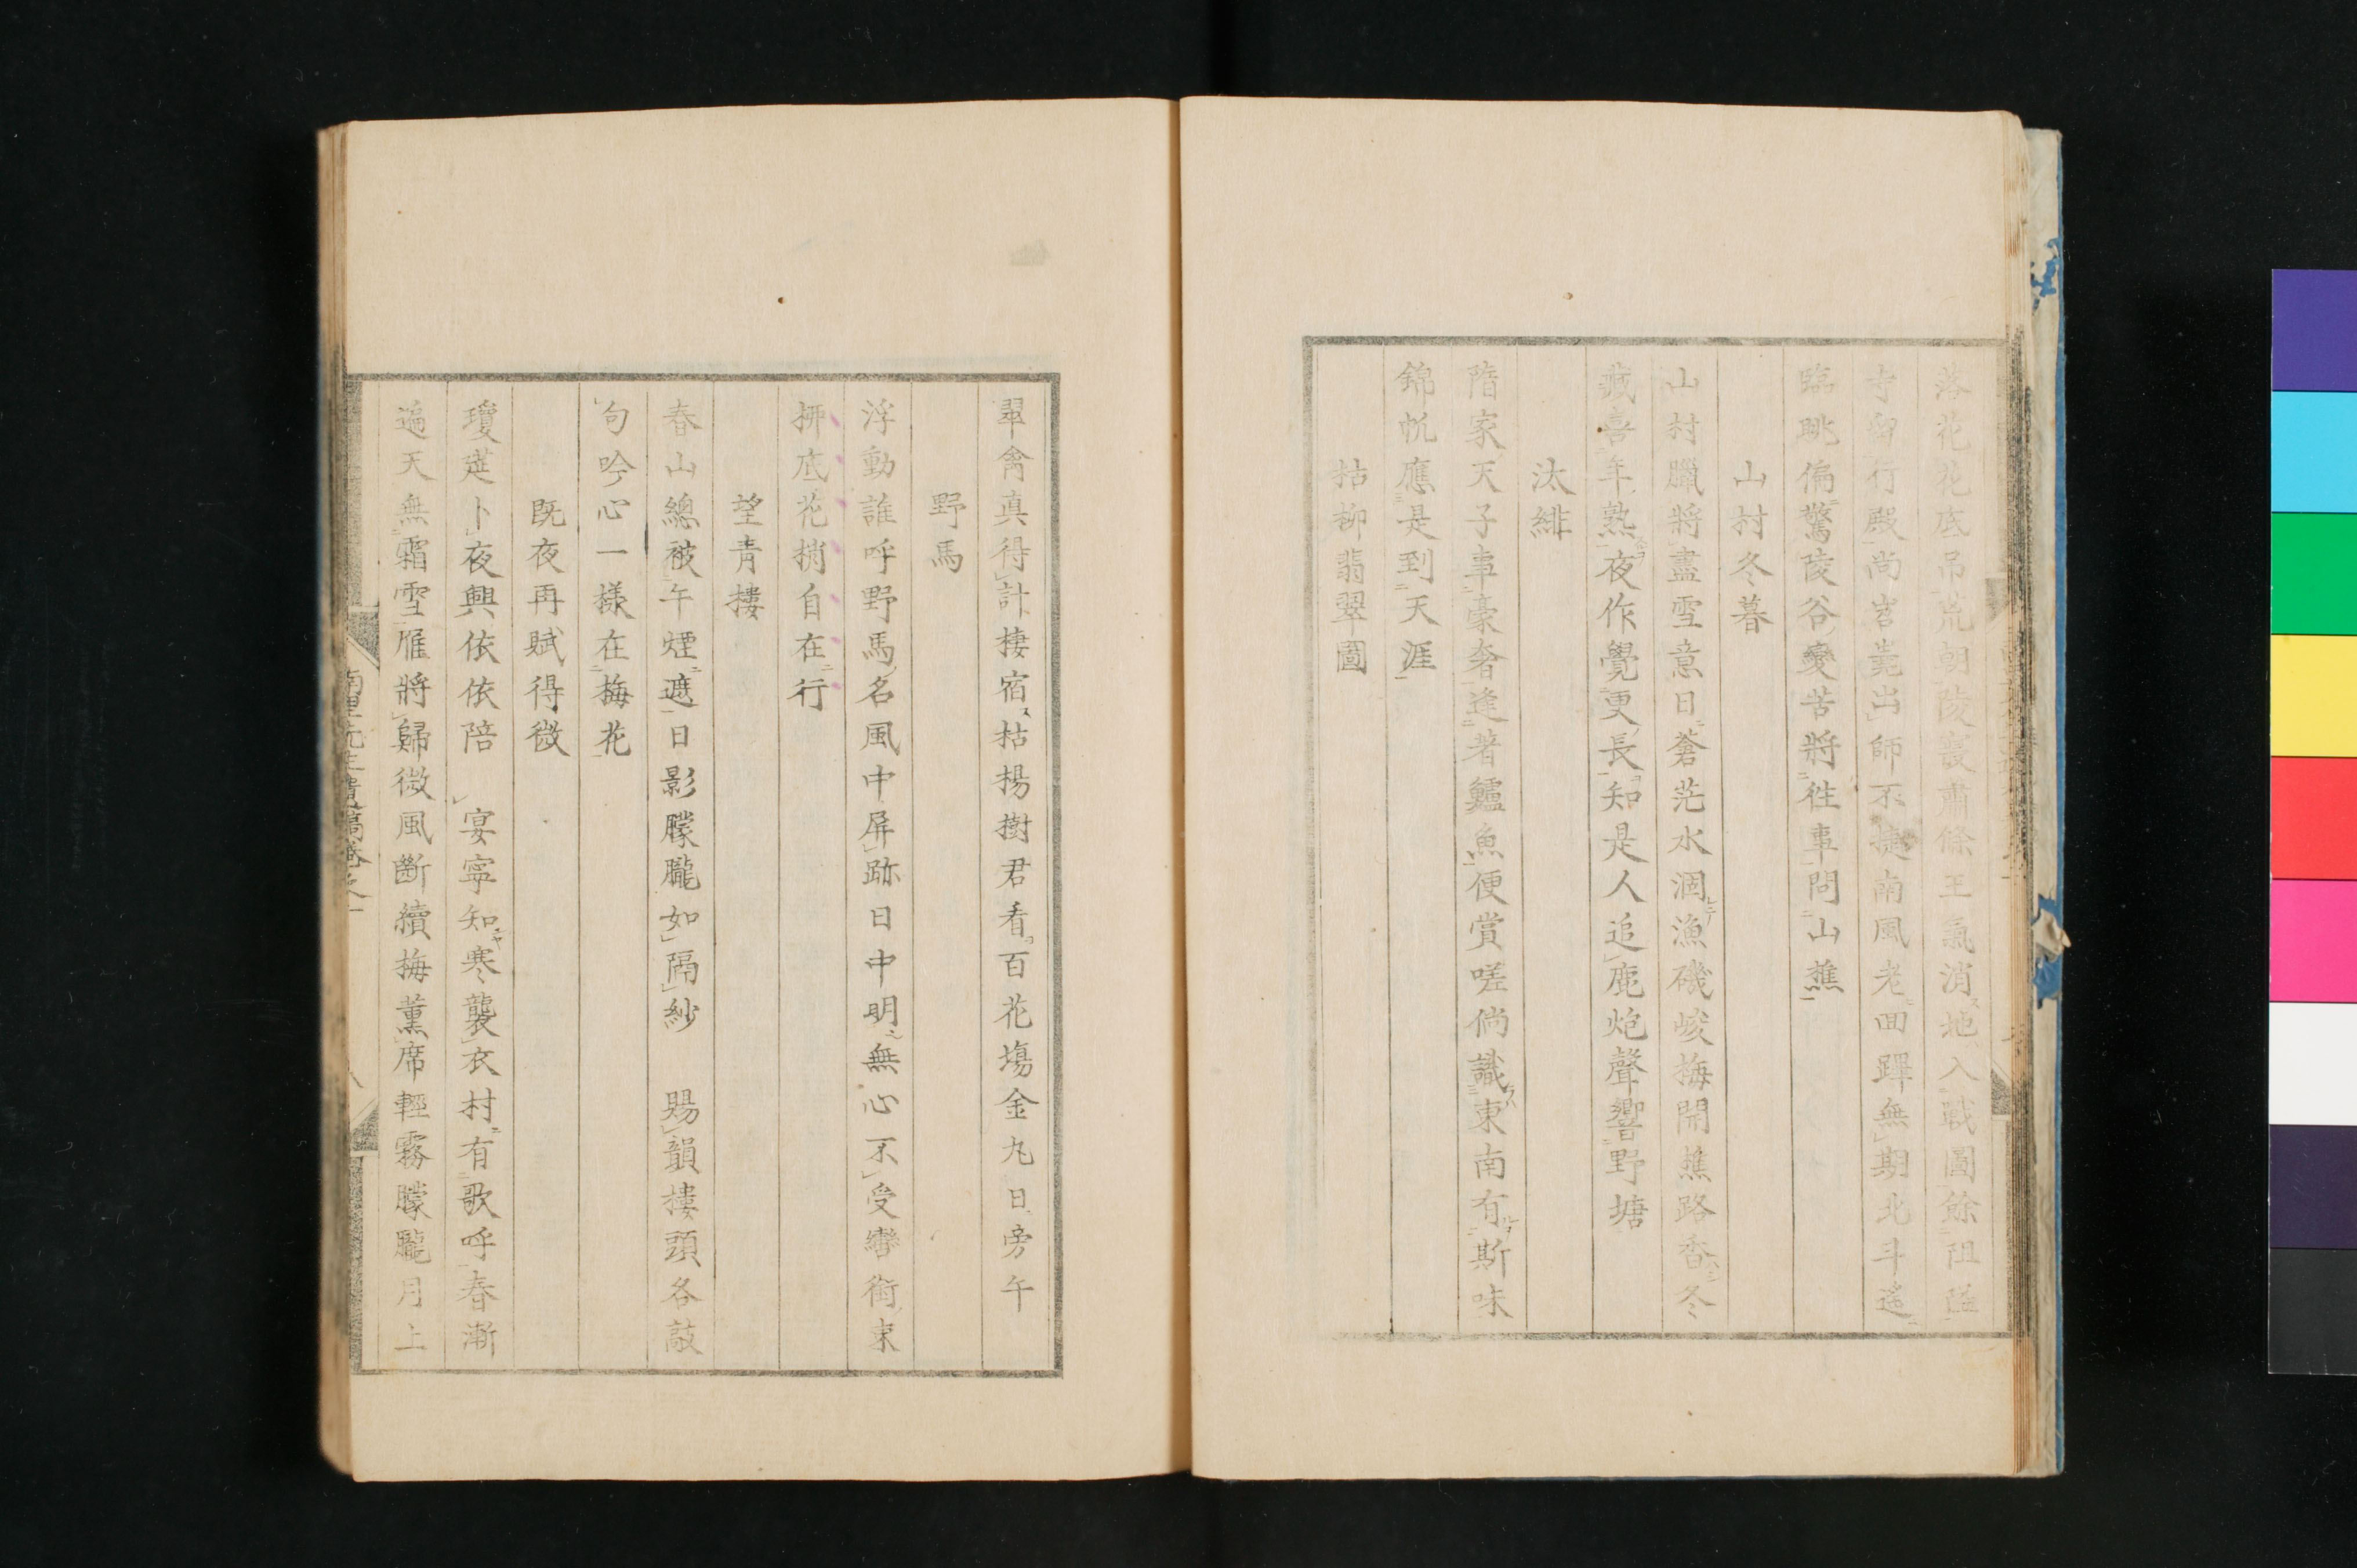 落花花底吊荒朝陵寢肅條王氣消地入戰圖餘阻隘
寺留行殿尚岧嶤出師不捷南風老回蹕無期北斗遙
臨眺偏驚陵谷變苦將徃事問山樵
山村冬暮
山村臘將盡雪意日蒼茫水涸漁磯峻梅開樵路香冬
藏喜年熟夜作覺更長知是人追鹿炮聲響野塘
汰緋
隋家天子事豪奢逢著鱸魚便賞嗟倘識東南有斯味
錦帆應是到天涯
枯柳翡翠圖
翠禽真得計棲宿枯楊樹君看百花塲金丸日旁午
野馬
浮動誰呼野馬名風中屏跡日中明無心不受轡銜束
拼底花梢自在行
望青樓
春山總被午煙遮日影朦朧如隔紗 賜韻樓頭各敲
句吟心一樣在梅花
既夜再賦得微
瓊莚卜夜興依依陪 宴寧知寒襲衣村有歌呼春漸
遍天無霜雪雁將歸微風斷續梅薰席輕霧朦朧月上